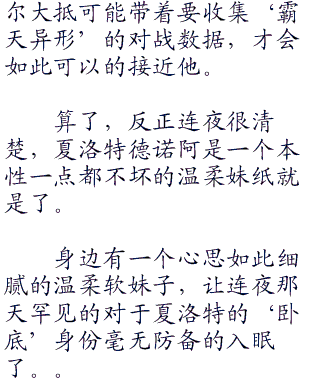 尔大抵可能带着要收集‘霸
天异形’的对战数据，才会
如此可以的接近他。
算了，反正连夜很清
楚，夏洛特德诺阿是一个本
性一点都不坏的温柔妹纸就
是了。
身边有一个心思如此细
腻的温柔软妹子，让连夜那
天罕见的对于夏洛特的‘卧
底’身份毫无防备的入眠
了。。